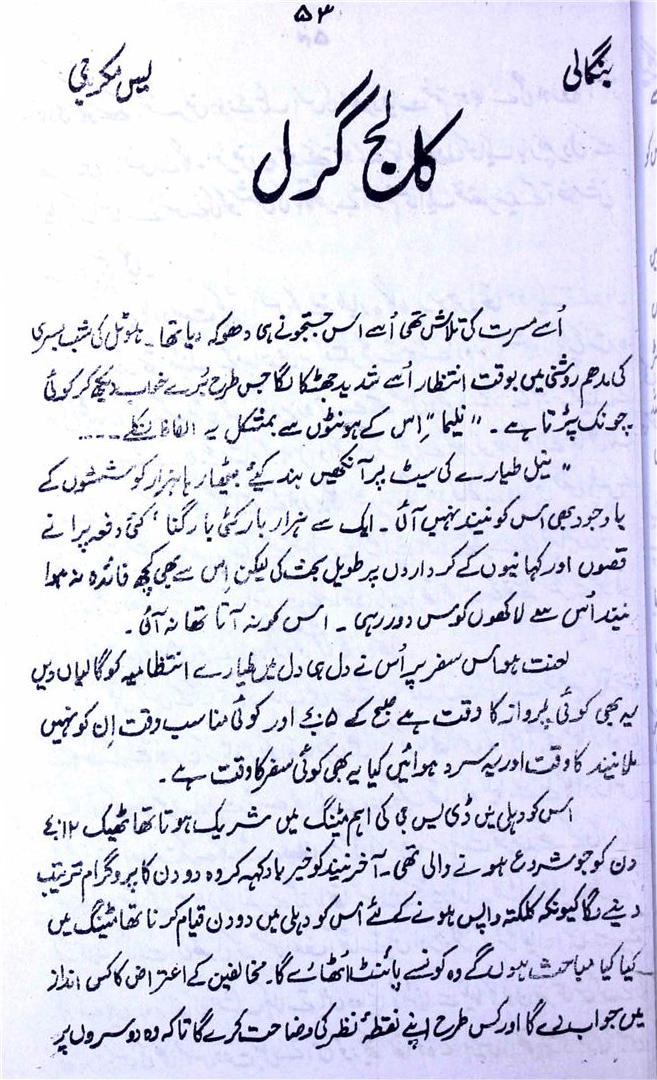 ۵۳
بنگالی
یس مکرجی
کالج گرل
اُسے مسرت کی تلاش تھی اُسے اس جستجو نے ہی دھوکہ دیا تھا۔ ہوٹل کی شب بسری
کی مدھم روشنی میں بوقت انتظار اُسے شدید جھٹکا لگا جس طرح بُرے خواب دیکھ کر کوئی
چونک پڑتا ہے۔ "نیلیما" اِس کے ہونٹوں سے بمشکل یہ الفاظ نکلے ۔۔۔۔
" نیل طیارے کی سیٹ پر آنکھیں بند کیے بیٹھا رہا ہزار کوششوں کے
باوجود بھی اس کو نیند نہیں آئی۔ ایک سے ہزار بار کئی بار گنا، کئی دفعہ پرانے
قصوں اور کہانیوں کے کرداروں پر طویل بحث کی لیکن اِس سے بھی کچھ فائدہ نہ ہوا
نیند اُس سے لاکھوں کوس دور رہی۔ اس کو نہ آنا تھا نہ آئی۔
لعنت ہو اس سفر پر اُس نے دل ہی دل میں طیارے انتظامیہ کو گالیاں دیں
یہ بھی کوئی پرواز کا وقت ہے صبح کے ۵ بجے اور کوئی مناسب وقت اِن کو نہیں
ملا نیند کا وقت اور یہ سرد ہوائیں کیا یہ بھی کوئی سفر کا وقت ہے۔
اس کو دہلی میں ڈی یس جی کی اہم مٹنگ میں شریک ہونا تھا ٹھیک ۱۲ بجے
دن کو جو شروع ہونے والی تھی۔ آخر نیند کو خیر باد کہہ کر وہ دو دن کا پروگرام ترتیب
دینے لگا کیونکہ کلکتہ واپس ہونے کے لئے اس کو دہلی میں دو دن قیام کرنا تھا مٹینگ میں
کیا کیا مباحث ہوں گے وہ کونسے پائنٹ اُٹھائے گا۔ مخالفین کے اعتراض کا کس انداز
میں جواب دے گا اور کس طرح اپنے نقطۂ نظر کی وضاحت کرے گا تاکہ وہ دوسروں پر